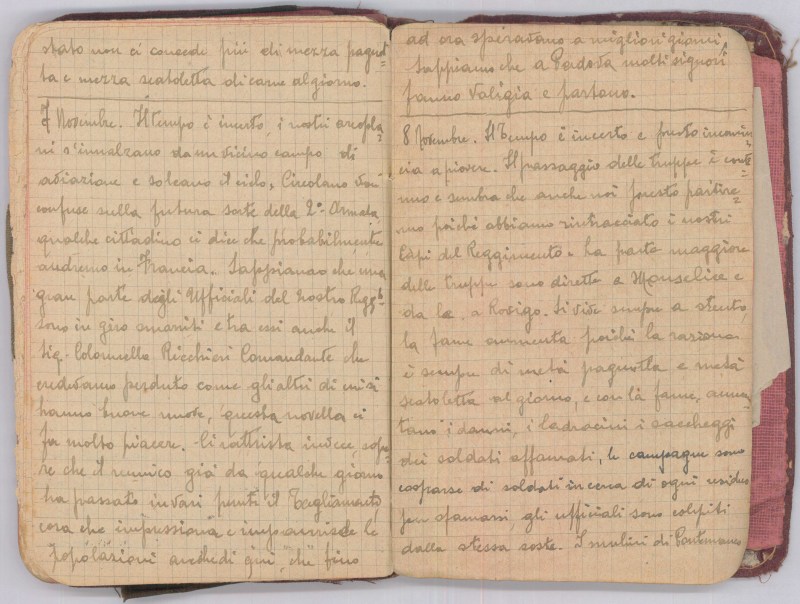 stato non ci concede più di mezza pagnot=
ta e mezza scatoletta di carne al giorno.
7 Novembre. Il tempo è incerto, i nostri areopla=
ni s'innalzano da un vicino campo di
aviazione e solcano il cielo. Circolano voci
confuse sulla futura sorte della 2ª Armata,
qualche cittadino ci dice che probabilmente
andremo in Francia. Sappiamo che una
gran parte degli Ufficiali del nostro Regg.to
sono in giro smarriti e tra essi anche il
Sig. Colonnello Ricchieri Comandante che
credevamo perduto come gli altri di cui si
hanno buone nuove, questa novella ci
fa molto piacere. Ci rattrista invece, sape=
re che il nemico già da qualche giorno
ha passato in vari punti il Tagliamento
cosa che impressiona e impaurisce le
popolazioni anche di qui, che fino
ad ora speravano a migliori giorni,
Sappiamo che a Padova molti signori
fanno valigia e partono.
8 Novembre. Il Tempo è incerto e presto incomin=
cia a piovere. Il passaggio delle truppe è conti=
nuo e sembra che anche noi presto partire=
mo poichè abbiamo rintracciato i nostri
Capi del Reggimento. La parte maggiore
delle truppe sono dirette a Monselice e
da là, a Rovigo. Si vive sempre a stento,
la fame aumenta poichè la razione
è sempre di metà pagnotta e metà
scatoletta al giorno, e con là fame, aumen
tano i danni, i ladrocini i saccheggi
dei soldati affamati, le campagne sono
cosparse di soldati in cerca di ogni residuo
per sfamarsi, gli ufficiali sono colpiti
dalla stessa sorte. I mulini di